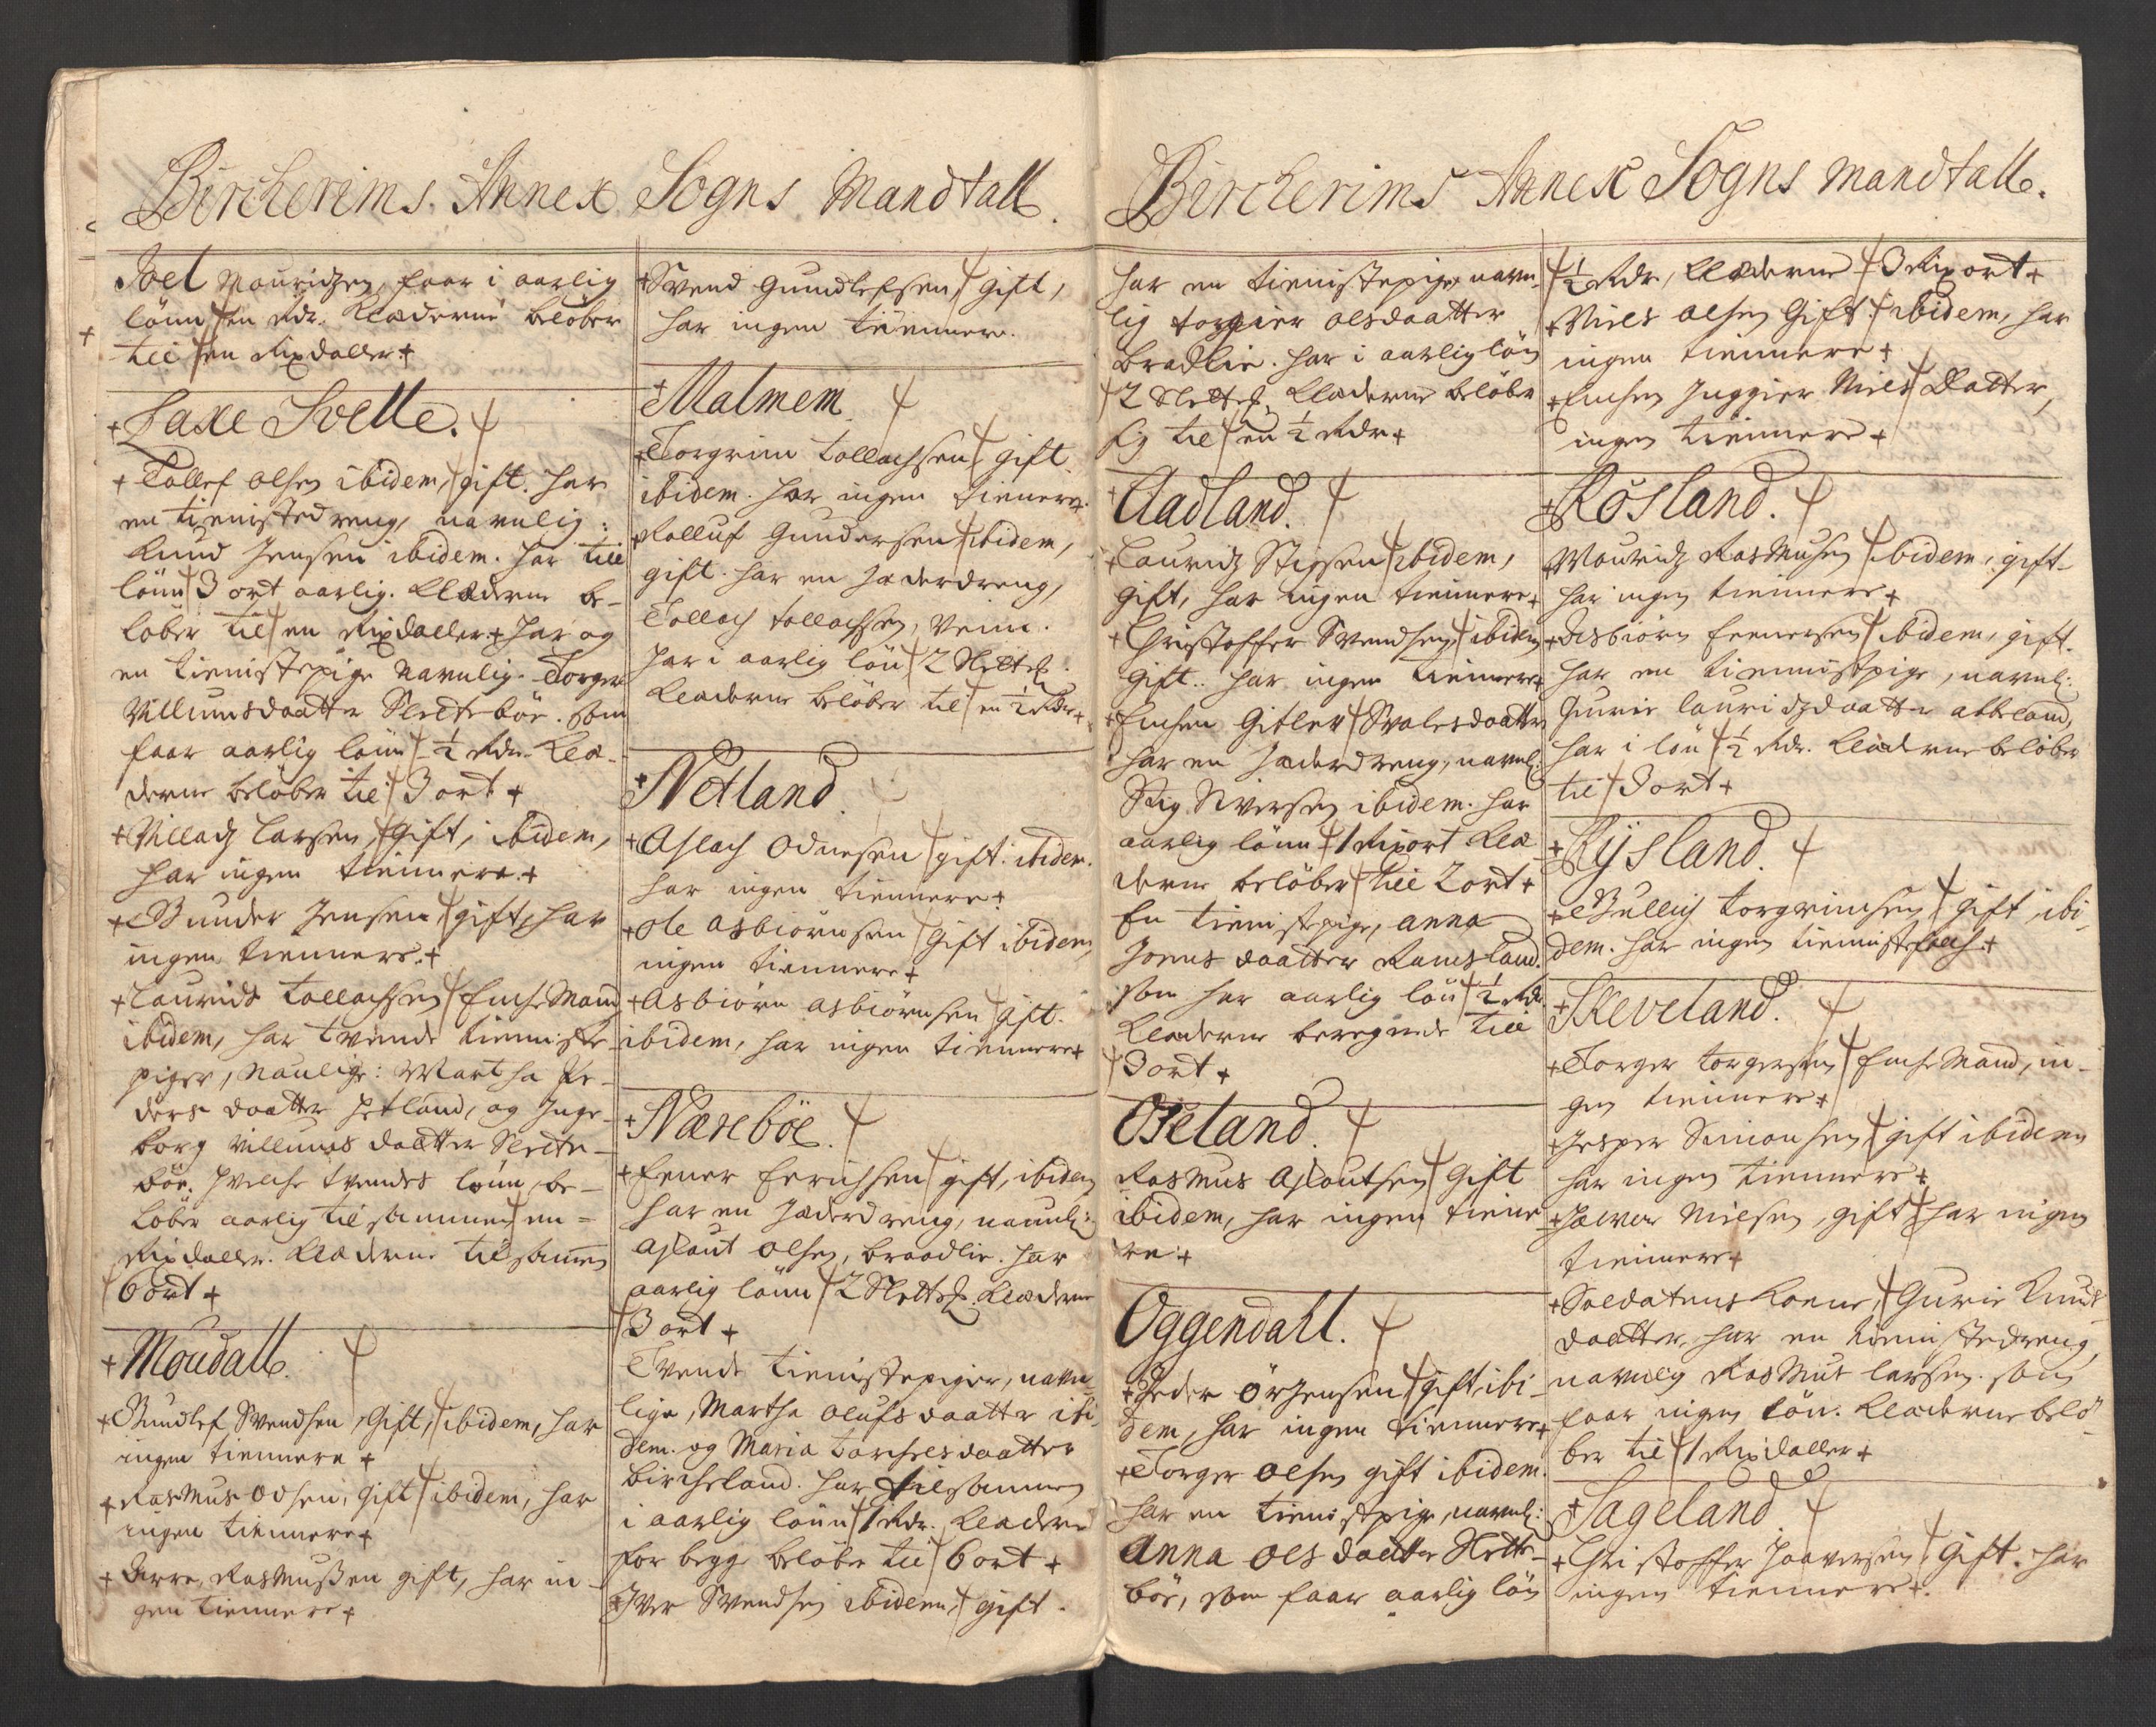 Bircherims Annex Sogns Mandtall.
Joel Mouridzen, faar i aarlig
lönn en Rdr. Klæderne belöber
till en Rixdaller
Laxe Svelle.
Tollef olsen ibidem, gift. har
en tienistedreng, navnlig:
Knud Jensen ibidem. har till
lönn 3 ort aarlig. Klæderne be-
löber till en Rixdaller. har og
en tienistepige navnlig. Torger
Villumsdaatter Sletteböe. som
faar aarlig lönn ½ Rdr. Klæ-
derne belöber till 3 ort
Villadz Larsen, Gift, ibidem,
har ingen tiennere.
Gunder Jensen gift, har
ingen tiennere.
Lauridz Tollachsen Enche Mand
ibidem, har tvende tienniste-
piger, Naulige: Martha Pe-
ders daatter Hetland, og Inge-
borg Villums daatter Slette-
böe. Hvilche tvendes lönn, be-
löber aarlig til sammen en
Rixdaller. Klæderne tilsamen
6 ort
Moudall.
Gundlef Svendsen, Gift, ibidem, har
ingen tiennere
Rasmus Odsen, Gift ibidem, har
ingen tiennere
Rasmussen gift, har in-
gen tiennere
Svend Gundlefsen, gift,
har ingen tiennere.
Malmem
Torgrim Tollachsen gift
ibidem. har ingen tienere.
Rolluf Gundersen ibidem,
gift. har en Hæderdreng,
Tollach Tollachsen, Veim.
har i aarlig lön 2 Sletd.
Klæderne belöber til en ½ Rdr
Netland
Aslach Odnesen gift. ibidem.
har ingen tiennere.
Ole Asbiörnsen Gift ibidem,
ingen tiennere
Asbiörn Asbiörnsen gift.
ibidem, har ingen tiennere
Næseböe.
Ener Erichsen gift, ibidem
har en Hæderdreng, navnl:
Aslaut Olsen, braadlie. har
aarlig lönn 2 Slettd. Klæderne
3 ort
Tvende tienistepiger, navn-
lige, Martha Olufsdaatter ibi-
dem. og Maria Torchelsdaatter
Bircheland. har tilsammen
i aarlig lönn 1 Rdr. Klæderne
for begge belöber til 6 ort
Iver Svendsen ibidem, gift.
Bircherims Annex Sogns Mandtall.
har en tienistepige, navn-
lig Torgier olsdaatter
Bradlie. har i aarlig lön
2 Slettd, Klæderne belöber
sig til en ½ Rdr
Aadland.
Lauridz Stigsen ibidem,
gift, har ingen tiennere
Christoffer Svendsen, ibidem
Gift. har ingen tiennere
Enchen Gitlev Svalesdaatter
har en Hæderdreng, navnl.
Stig Siversen ibidem. har
aarlig lönn 1 Rixort Klæ-
derne belöber till 2 ort
En tienistepige, Anna
Joens daatter Ramsland.
som har aarlig lön ½ Rdr.
Klæderne beregnede till
3 ort
Oseland.
Rasmus Aslautsen Gift
ibidem, har ingen tiene
re.
Oggendall.
Peder Örjensen gift, ibi-
dem, har ingen tiennere
Torger Olsen gift ibidem.
har en tienistpige, navnl:
Anna Ols daatter Slette-
böe, som faar aarlig lön
½ Rdr, Klæderne 3 Rixort
Niels Olsen Gift ibidem, har
ingen tiennere
Enchen Inggier Niels Datter,
ingen tiennere
Rösland.
Mouridz Rasmusen ibidem, gift
har ingen tiennere
Asbiörn Eenersen ibidem, gift.
har en tiennistpige, navnl:
Guriæ lauridzdaatter abeland,
har i lön ½ Rdr. Klæderne belöber
til 3 ort
Rysland.
Gullich Torgrimsen gift ibi-
dem. har ingen tiennistefolch.
Skeveland.
Torger Torgersen Enche Mand, in-
gen tiennere
Jesper Simonsen gift ibidem
har ingen tiennere
Halvor Nielsen, gift har ingen
tiennere
Soldatens Konne, Gurie Knuds
daatter, har en tienistedreng,
navnlig Rasmus Larsen. som
faar ingen lön. Klæderne belö-
ber til 1 Rixdaller
Sageland
Christoffer Haaversen, Gift. har
ingen tiennere.